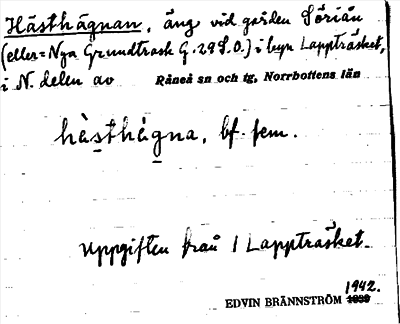 Hästhägnan, äng vid gården Sörián
(eller = Nya Grundtrask G. 29 S.O.) i byn Lappträsket,
i N. delen av Råneå sn och tg, Norrbottens län
hàsthágna, bf. fem.
Uppgiften från 1 Lappträsket.
1942.
EDVIN BRÄNNSTRÖM 1939